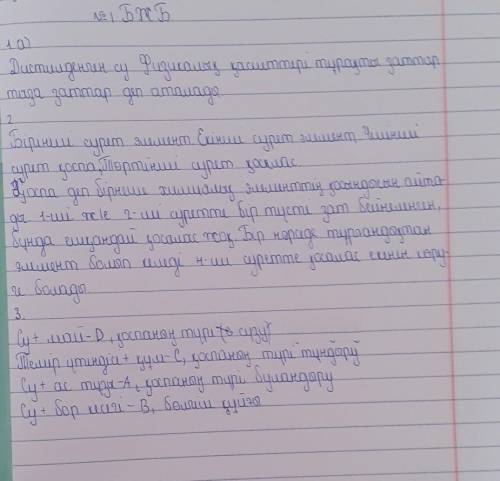 №1 БЖБ
1 а)
Дистилденген су Физикалық қасиеттері тұрақты заттар
таза заттар деп аталады
2.
Бірінші сурет элемент Екінші сурет элемент, Үшінші
сурет қоспа. Төртінші сурет қосылас
Қоспа деп бірнеше химиялық элементтің қосындысын айта-
ды 1-ші және 2-ші суретте бір түсті зат бейнеленген,
бұнда ешқандай қосалас жоқ. Бір нәрседе тұрғандықтан
элемент болып келеді 4-ші суретте қосалас екенін көру-
ге болады.
3.
Су + май-D, қоспаның түрі сүзу
Темір үтіндісі + құм-C, қоспаның түрі тұндыру
Су + ас тұзы-A, қоспаның түрі буландыру
Су + бор -B, бөлгіш құйғы